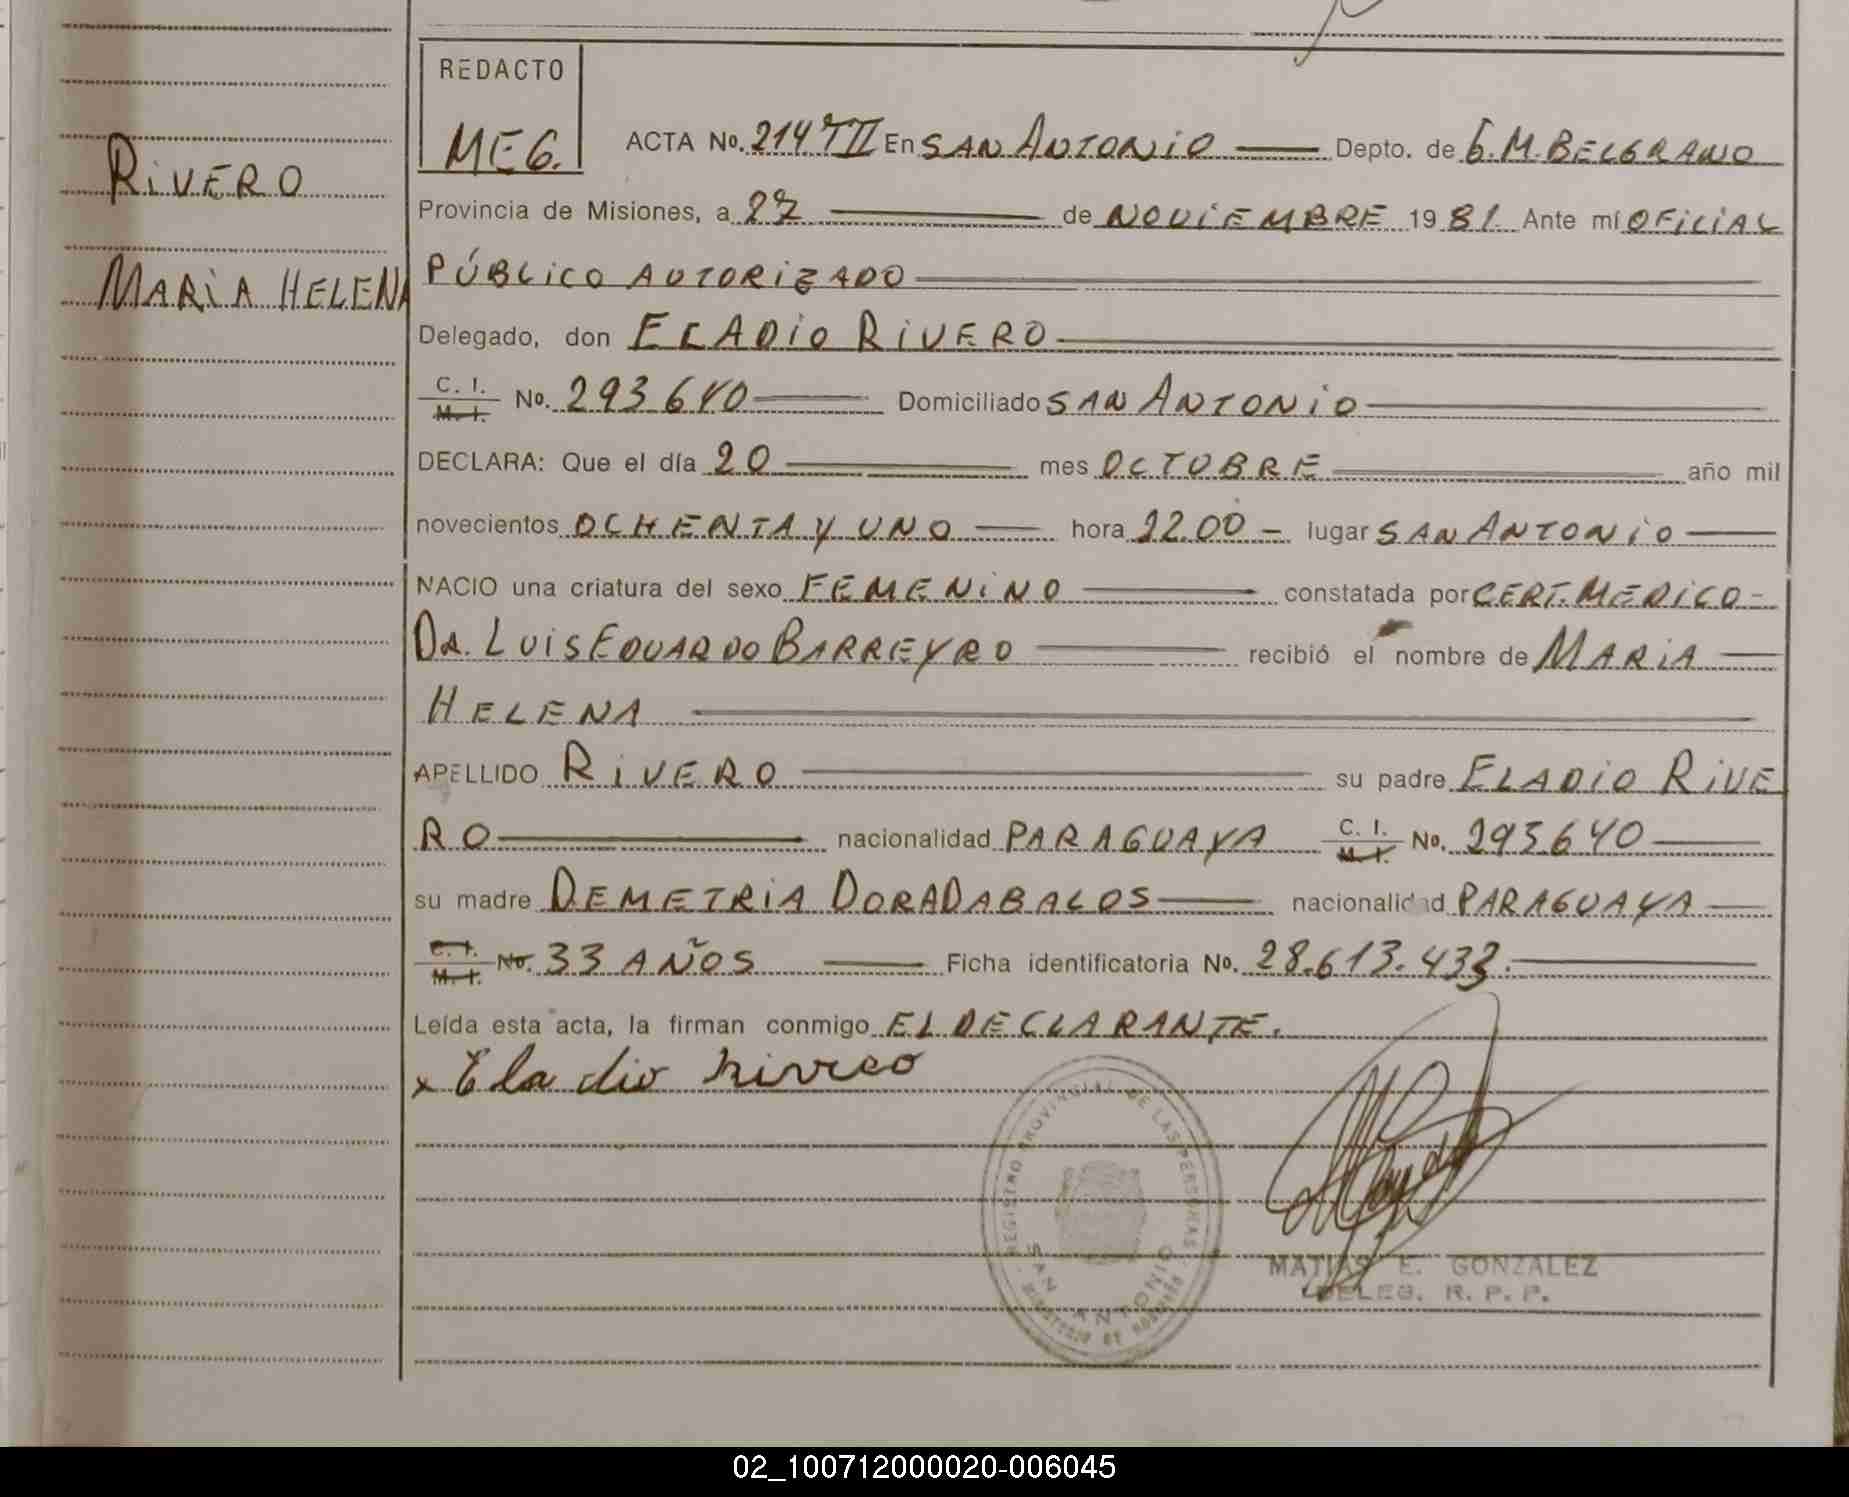 REDACTO
MEG.
RIVERO
MARIA HELENA
ACTA No. 214 TII En SAN ANTONIO Depto. de G.M. BELGRANO
Provincia de Misiones, a 27 de NOVIEMBRE 1981 Ante mí OFICIAL
PÚBLICO AUTORIZADO
Delegado, don ELADIO RIVERO
C. I. M. I. No. 293640 Domiciliado SAN ANTONIO
DECLARA: Que el día 20 mes OCTOBRE año mil
novecientos OCHENTA Y UNO hora 22.00 - lugar SAN ANTONIO
NACIO una criatura del sexo FEMENINO constatada por CERT. MEDICO -
DR. LUIS EDUARDO BARREYRO recibió el nombre de MARIA
HELENA
APELLIDO RIVERO su padre ELADIO RIVE
RO nacionalidad PARAGUAYA C. I. M. I. No. 293640
su madre DEMETRIA DORA DABALOS nacionalidad PARAGUAYA
C. I. M. I. No. 33 AÑOS Ficha identificatoria No. 28.613.433.
Leída esta acta, la firman conmigo EL DECLARANTE.
x Eladio
REGISTRO PROVINCIAL DE LAS PERSONAS
SAN ANTONIO
MATIAS E. GONZALEZ
DELEG. R. P. P.
02_100712000020-006045